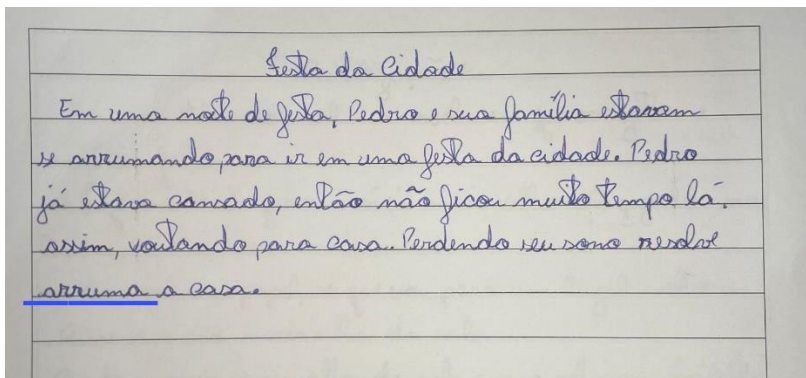 Festa da Cidade
Em uma noite de festa, Pedro e sua família estavam
se arrumando para ir em uma festa da cidade. Pedro
já estava cansado, então não ficou muito tempo lá,
assim, voutando para casa. Perdendo seu sono resolve
arruma a casa.